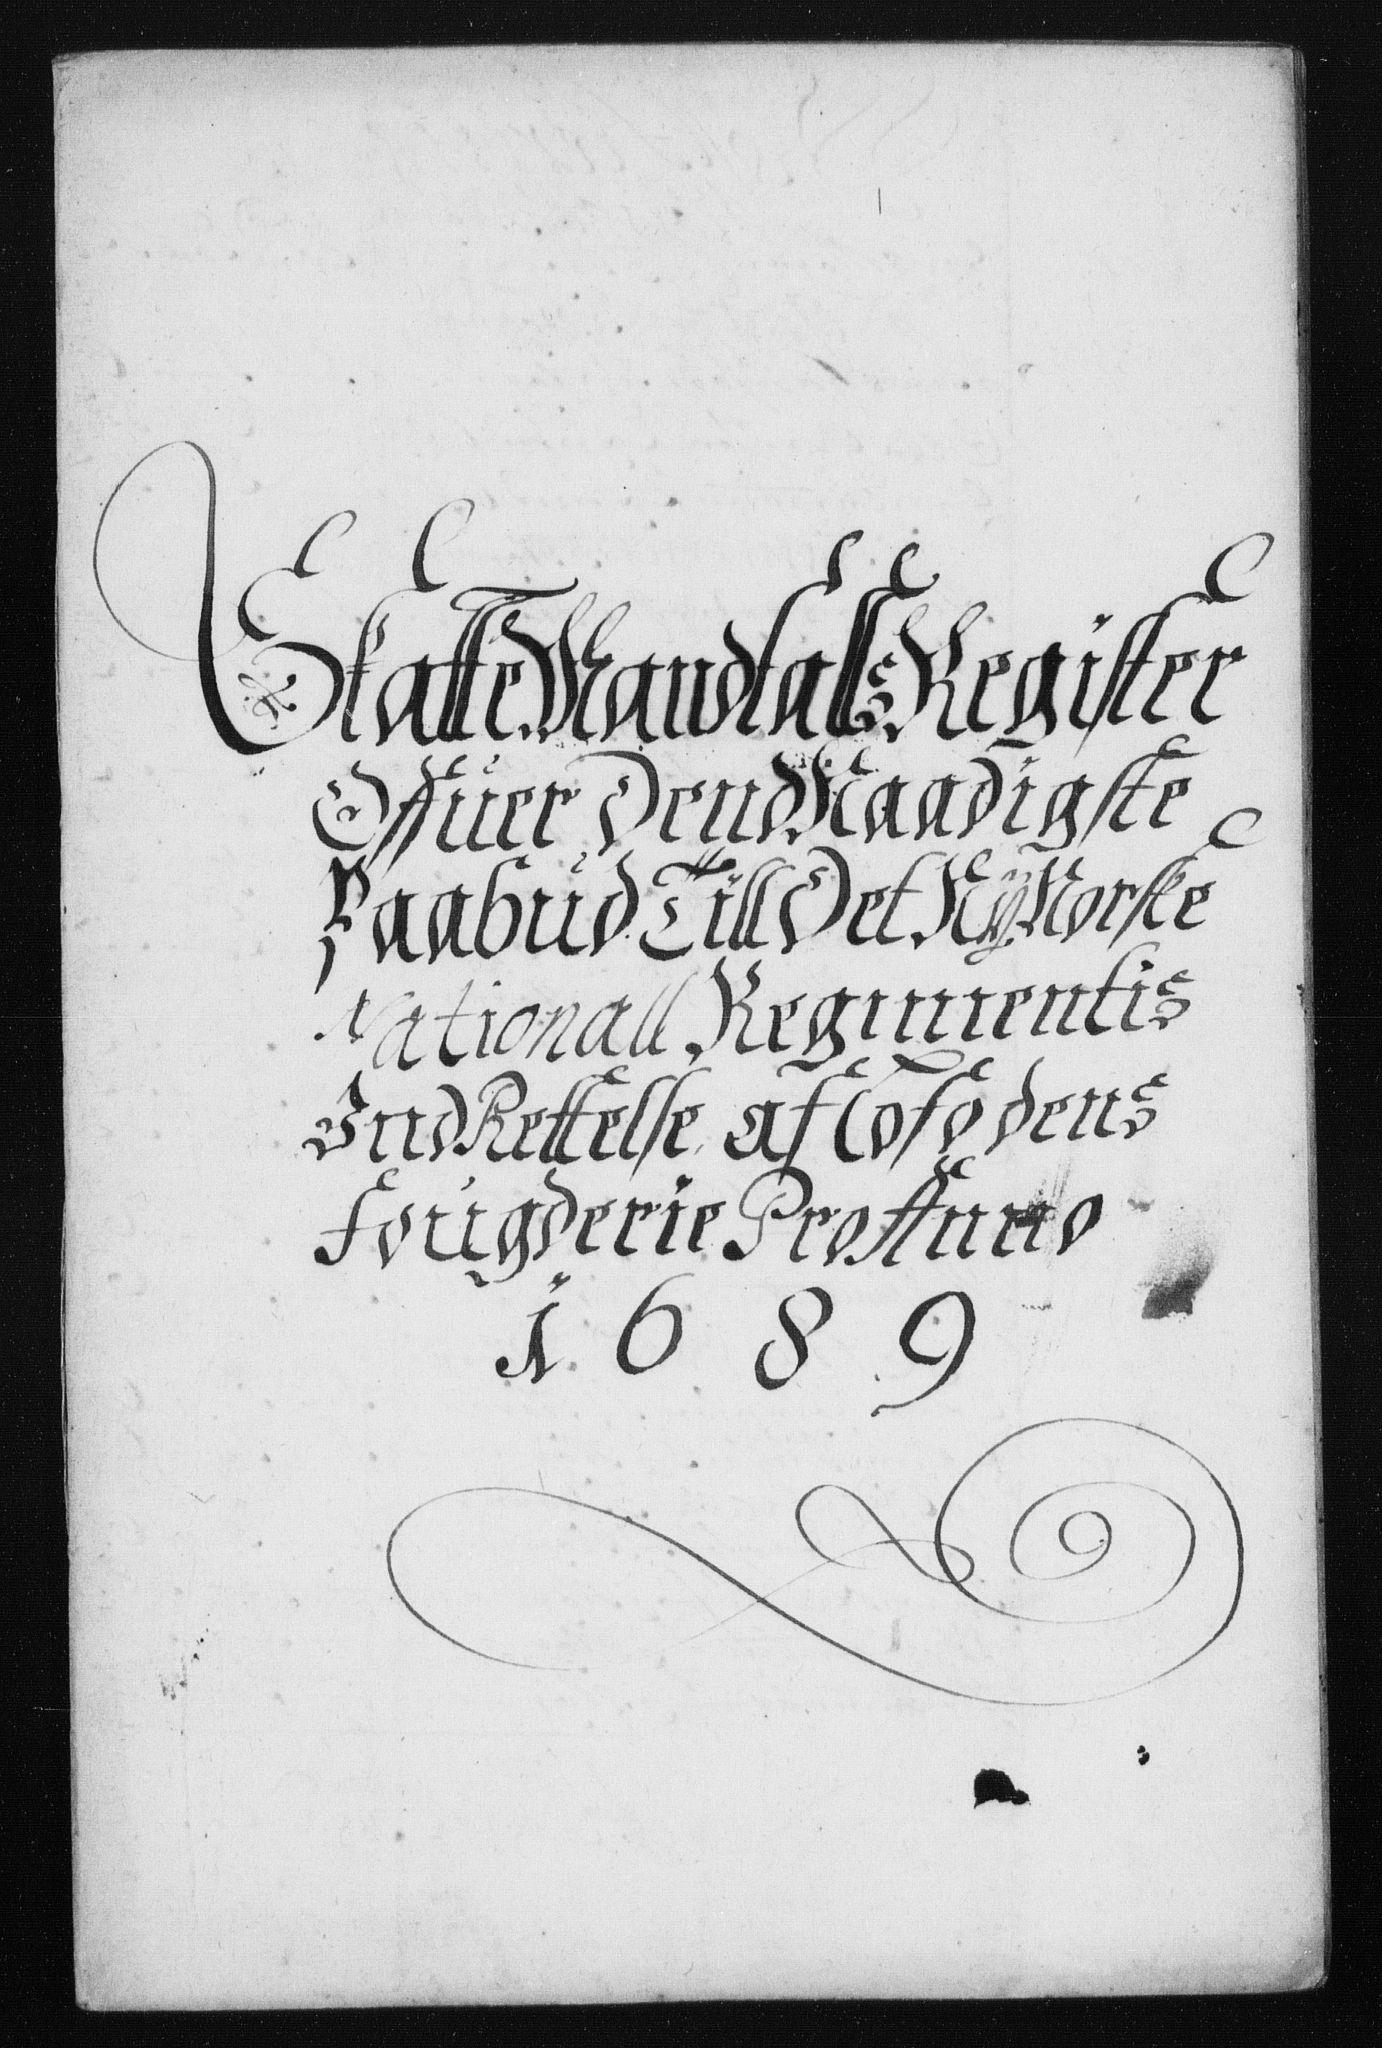 Skatte Mandtalls Register
Offuer Dend Naadigste
Paabud Till Det Ny Norske
Nationall Regimentis
Ind Rettelse af Lofodens
fougderie Pro Anno
1689